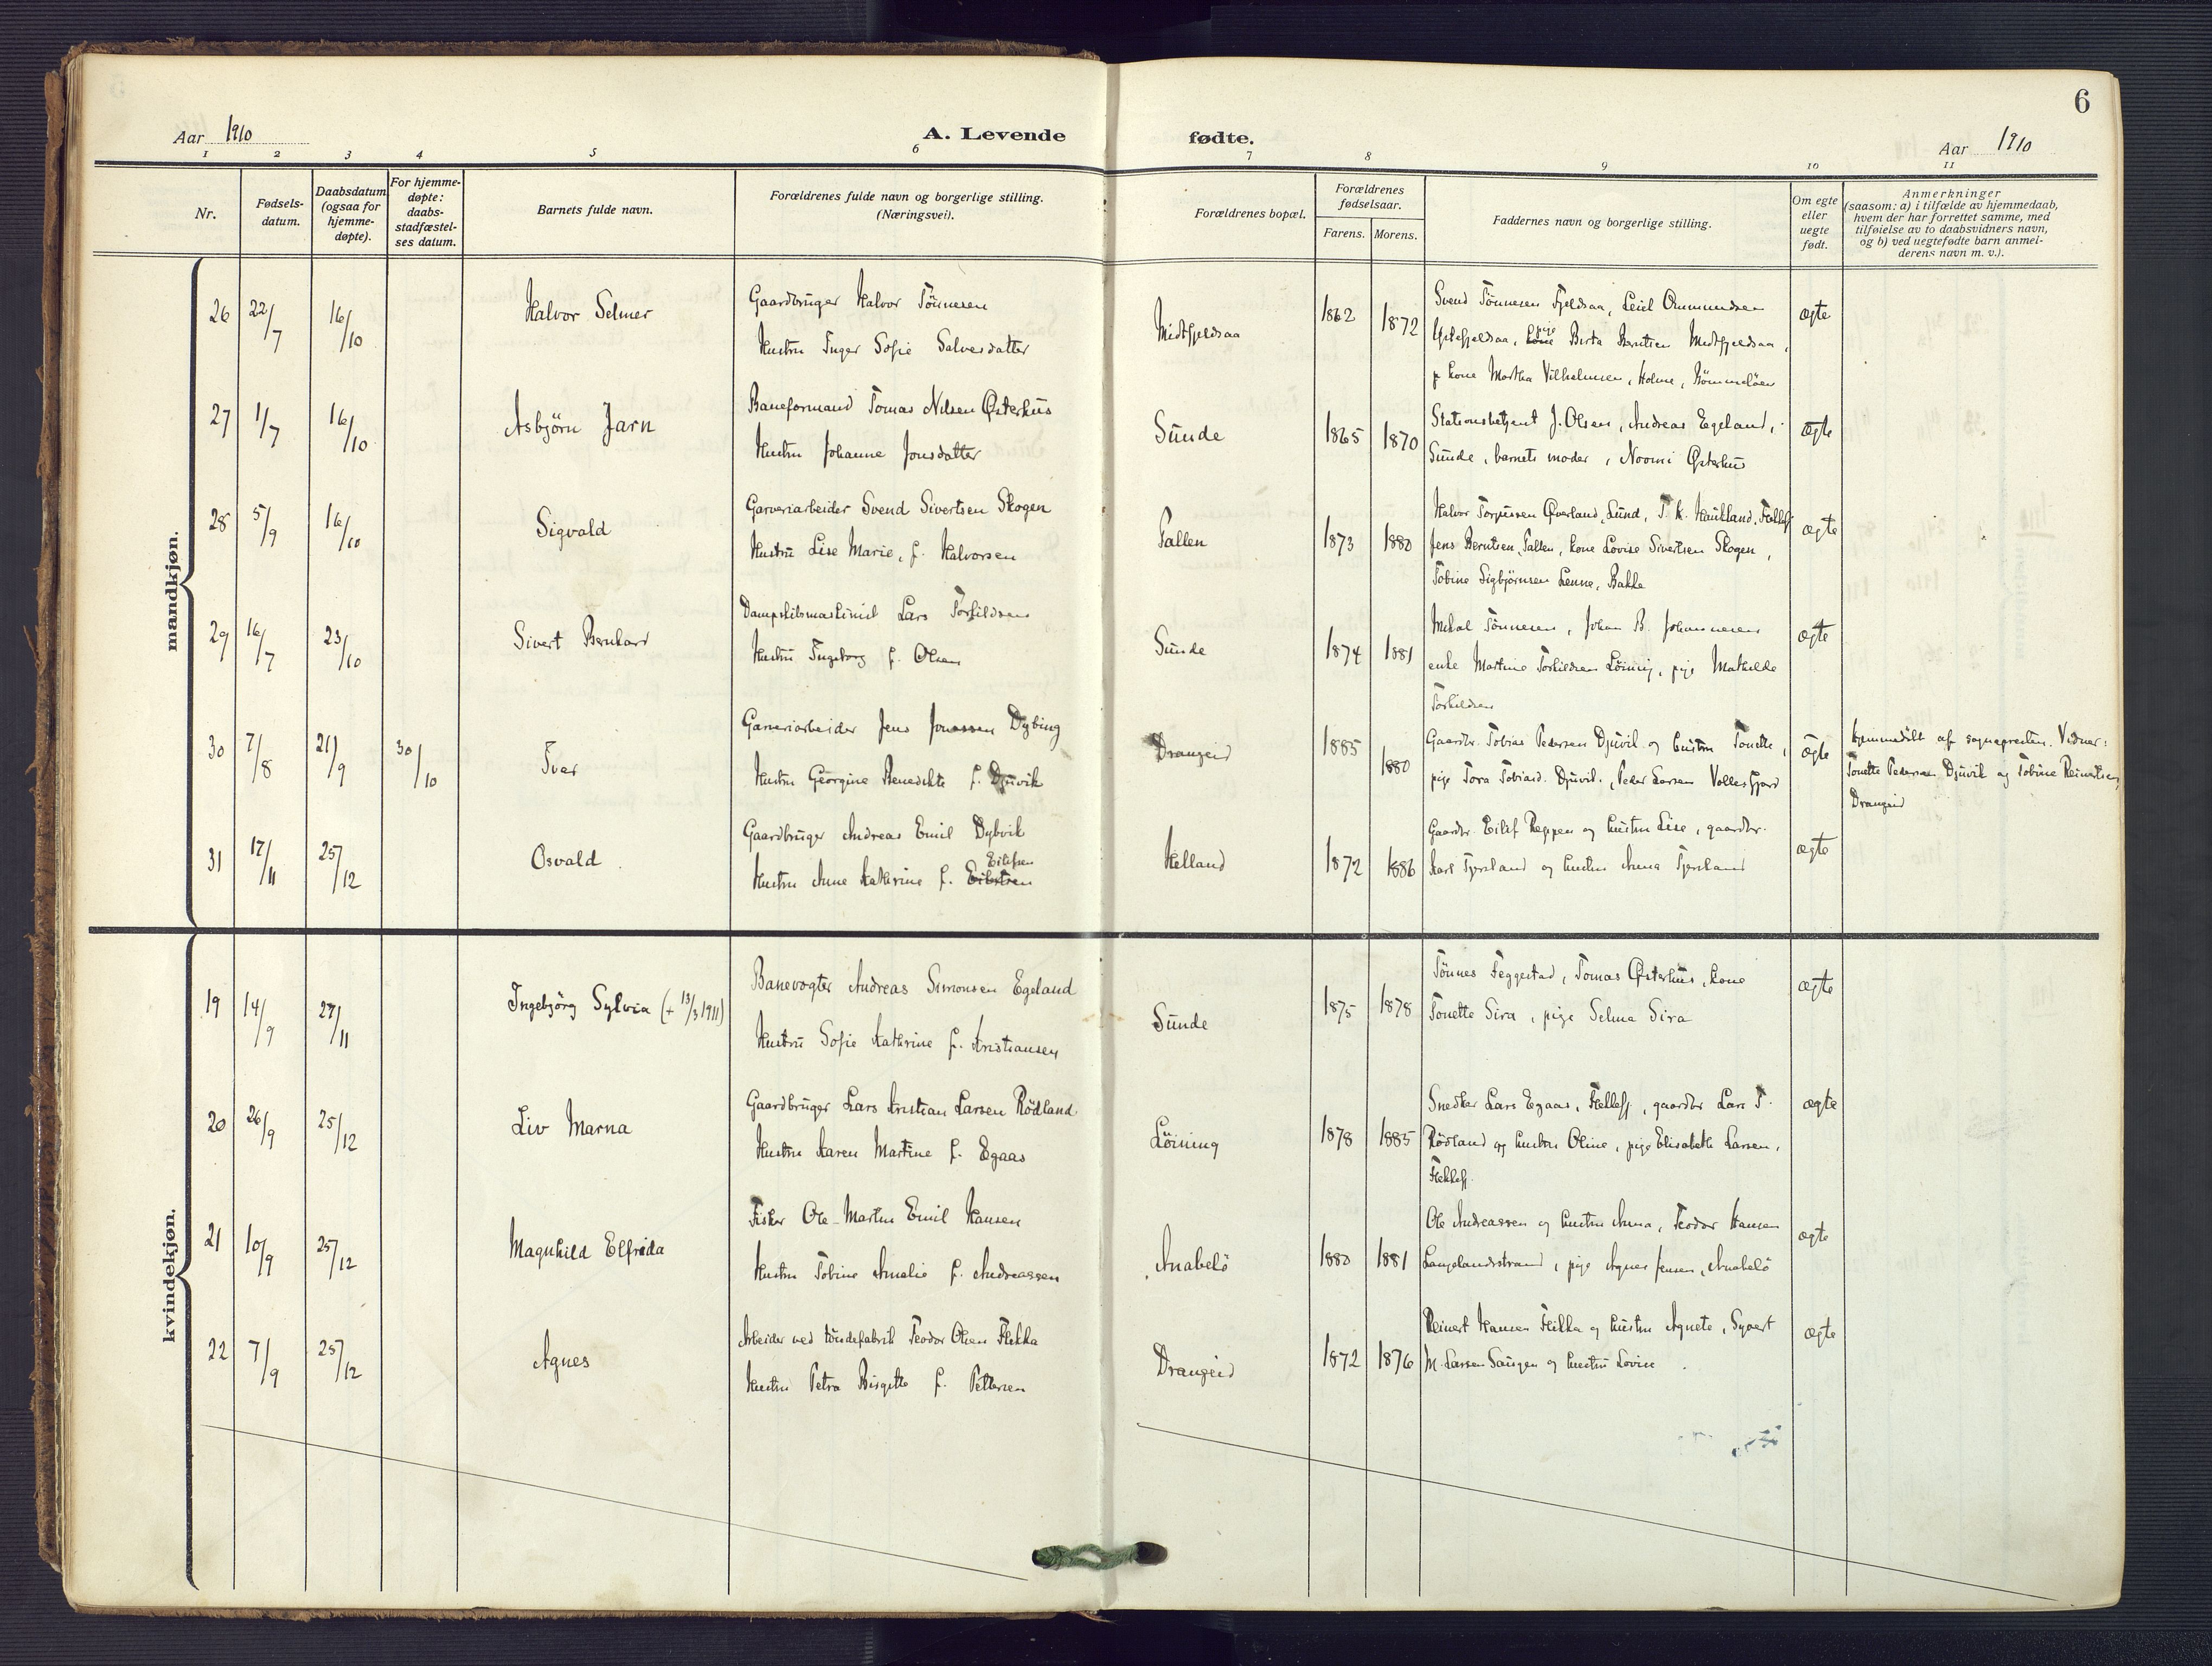 6
Aar 1910
A. Levende fødte.
Aar 1910
1 2 3 4 5 6 7 8 9 10 11
Nr.
Fødsels-
datum.
Daabsdatum
(ogsaa for
hjemme-
døpte).
For hjemme-
døpte:
daabs-
stadfæstel-
ses datum.
Barnets fulde navn.
Forældrenes fulde navn og borgerlige stilling.
(Næringsvei).
Forældrenes bopæl.
Forældrenes
fødselsaar.
Farens. Morens.
Faddernes navn og borgerlige stilling.
Om egte
eller
uegte
født.
Anmerkninger
(saasom: a) i tilfælde av hjemmedaab,
hvem der har forrettet samme, med
tilføielse av to daabsvidners navn,
og b) ved uegtefødte barn anmel-
derens navn m. v.).
mandkjøn.
26 22/7 16/10 Halvor Selmer
Gaardbruger Halvor Tönnesen
Hustru Inger Sofie Salvesdatter
Midtfjeldsaa 1862 1872
Svend Tönnesen Fjeldsaa, Leiel Ommundsen
Ystefjeldsaa, kone pige Berta Berntsen Midtfjeldsaa,
kone Martha Vilhelmsen, Holme,
ægte
27 1/7 16/10 Asbjörn Jarn
Baneformand Tomas Nilsen Østerhus
Hustru Johanne Jonsdatter
Sunde 1865 1870
Stationsbetjent J. Olsen, Andreas Egeland,
Sunde, barnets moder, Noomi Østerhus
ægte
28 5/9 16/10 Sigvald
Garveriarbeider Svend Sivertsen Skogen
Hustru Lise Marie, f. Halvorsen
Fallen 1873 1880
Halvor Torgussen Øverland, Lund, T. K. Haukland, Flekkefj
Jens Berntsen, Fallen, kone Lovise Sivertsen Skogen,
Tobine Sigbjörnsen Lenne, Bakke
ægte
29 16/7 23/10 Sivert Bernhard
Dampskibsmaskinist Lars Torkildsen
Hustru Ingeborg f. Olsen
Sunde 1874 1881
Mikal Tönnesen, Johan B. Johannesen
enke Martine Torkildsen Löining, pige Mathilde
Torkildsen
ægte
30 7/8 21/9 30/10 Ivar
Garveriarbeider Jens Jonassen Dybing
Hustru Georgine Benedikte f. Djuvik
Drangeid 1885 1880
Gaardbr. Tobias Pedersen Djuvik og hustru Tonette,
pige Tora Tobiasd. Djuvik, Peder Larsen Vollesfjord
ægte
hjemmedöbt af sognepresten. Vidner:
Tonette Pedersen Djuvik og Tobine Reinertsen,
Drangeid
31 17/11 25/12 Osvald
Gaardbruger Andreas Emil Dybvik
Eilifsen
Hustru Anne Kathrine f. Eilertsen
Helland 1872 1886
Gaardbr. Eilif Reppen og hustru Lise, gaardbr.
Karl Tjersland og hustru Anna Tjersland
ægte
kvindekjøn.
19 14/9 27/11 Ingebjörg Sylvia (+ 13/3 1911)
Banevogter Andreas Simonsen Egeland
Hustru Sofie Kathrine f. Kristiansen
Sunde 1875 1878
Tönnes Feggestad, Tomas Østerhus, kone
Tonette Sira, pige Selma Sira
ægte
20 26/9 25/12 Liv Marna
Gaardbruger Lars Kristian Larsen Rödland
Hustru Karen Martine f. Egaas
Löining 1878 1885
Snedker Lars Egaas, Flekkefj, gaardbr Lars T.
Rödland og hustru Oline, pige Elisabeth Larsen,
Flekkefj.
ægte
21 10/9 25/12 Magnhild Elfrida
Fisker Ole Martin Emil Hansen
Hustru Tobine Amalie f. Andreassen
Anabelö 1880 1881
Ole Andreassen og hustru Anna, Teodor Hansen
Langelandsstrand, pige Agnes Jensen, Anabelö
ægte
22 7/9 25/12 Agnes
Arbeider ved töndefabrik Teodor Olsen Flikka
Hustru Petra Birgitte f. Pettersen
Drangeid 1872 1876
Reinert Hansen Flikka og hustru Agnete, Syvert
M. Larsen Haugen og hustru Lovise
ægte